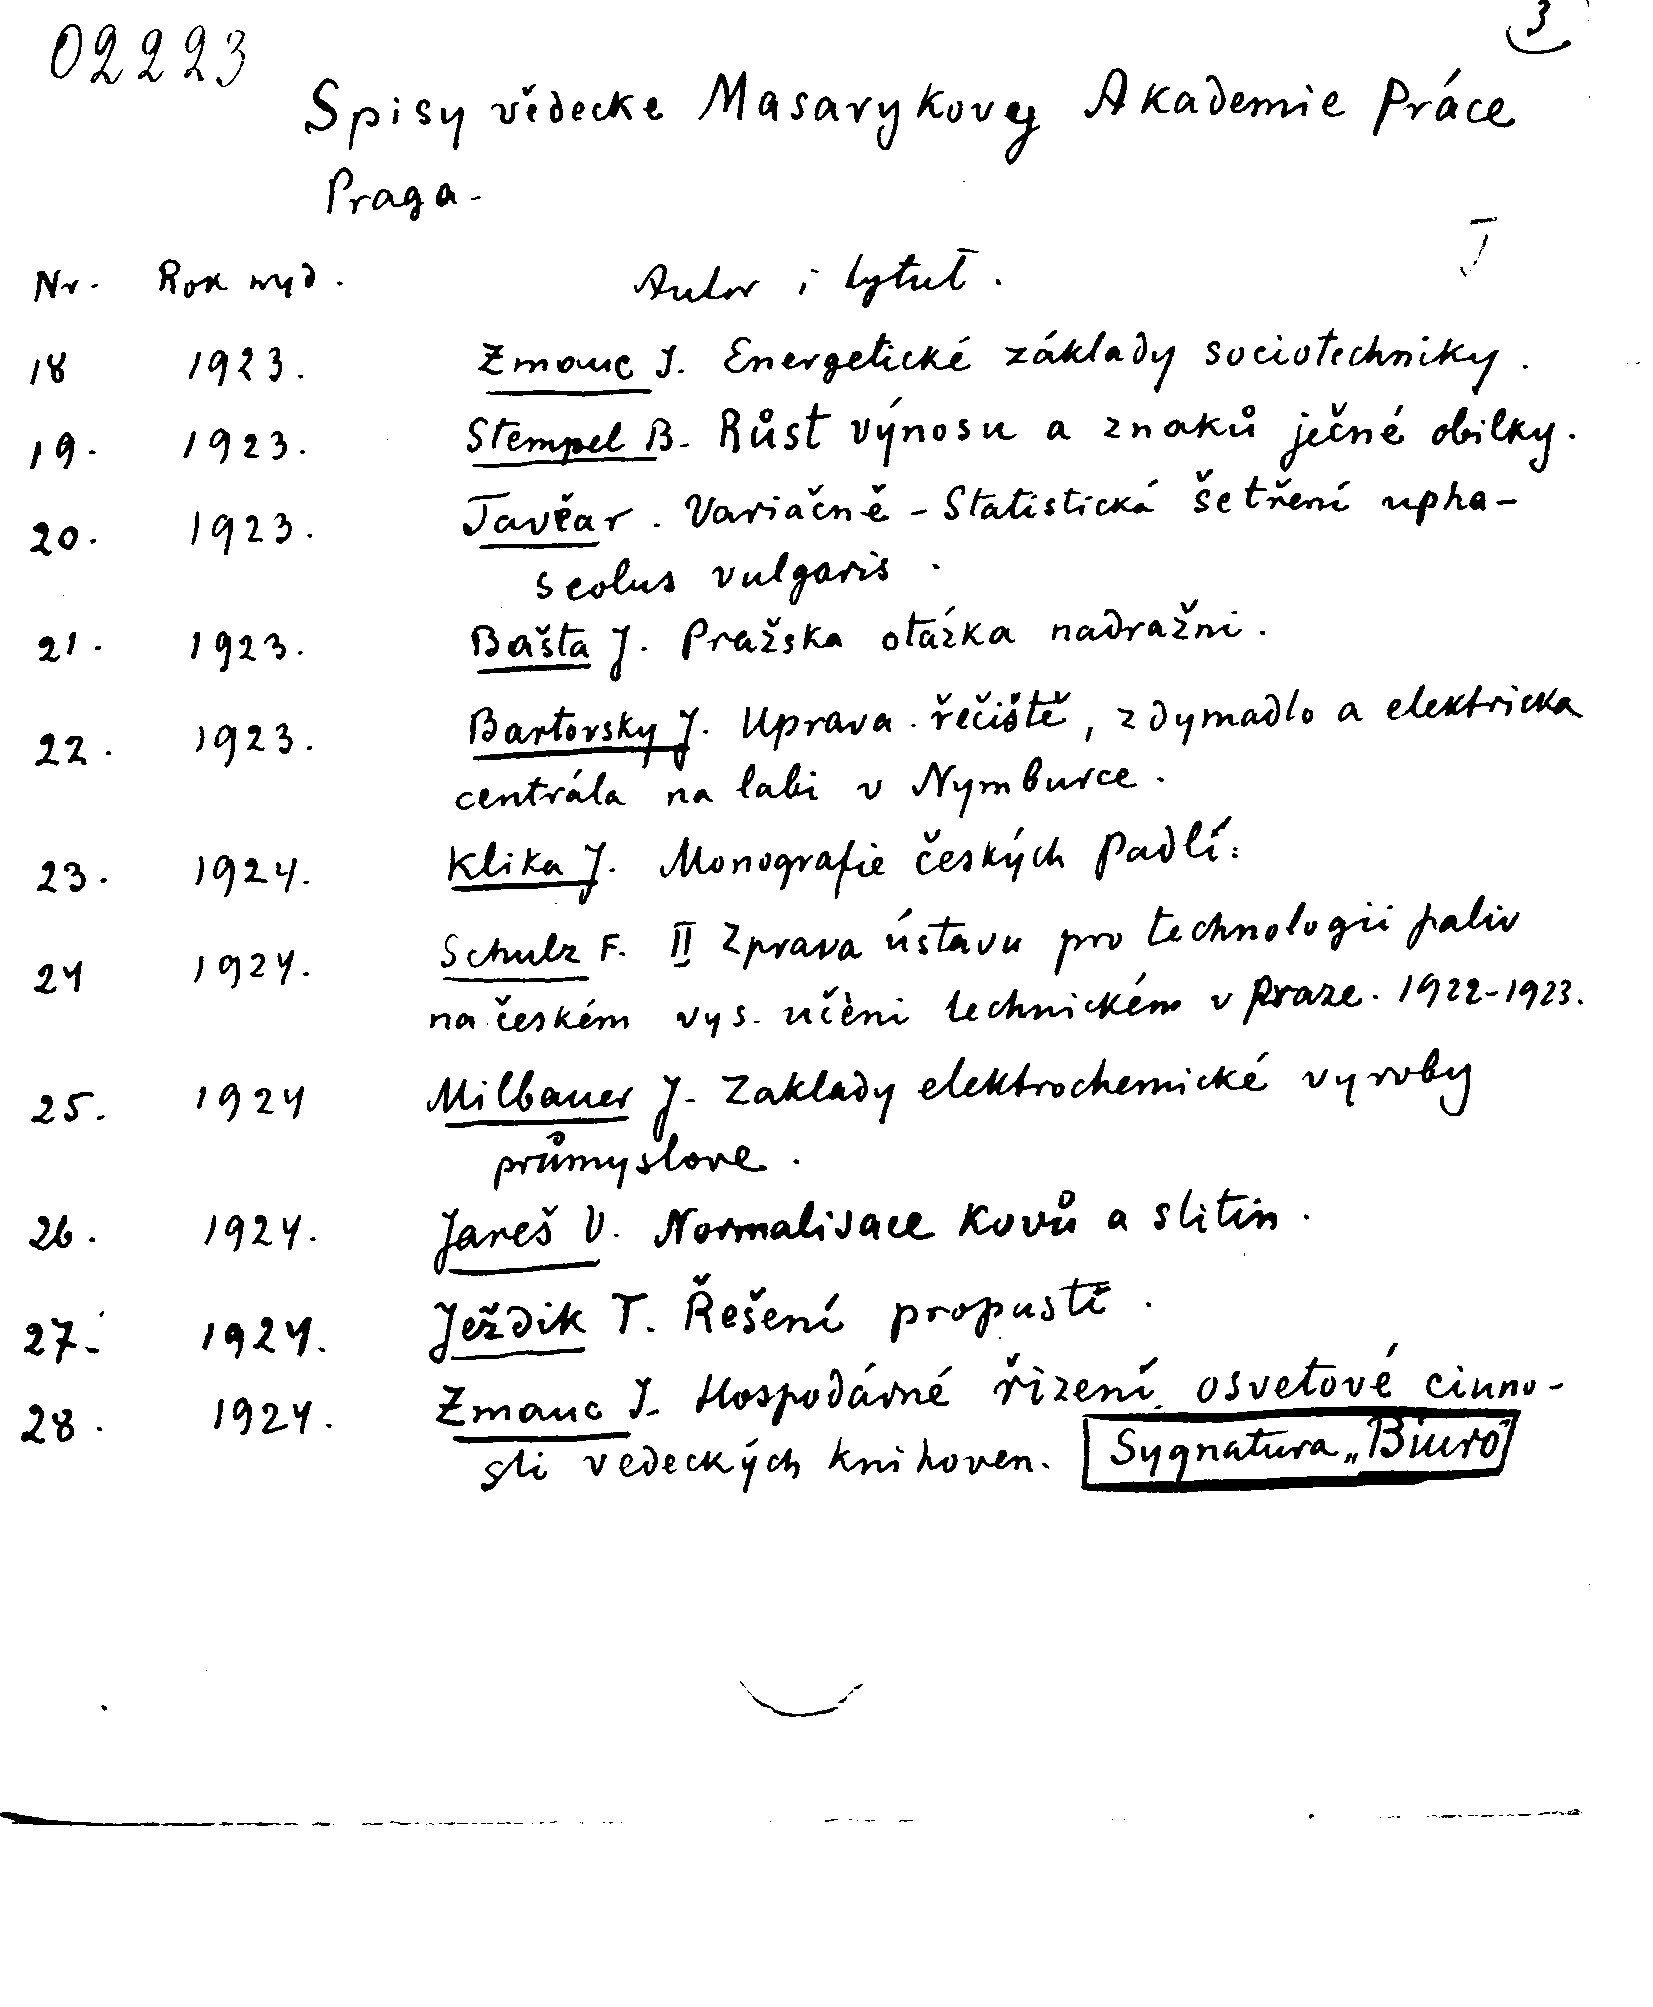 02223
3
Spisy vědecke Masarykovej Akademie Práce
Praga.
I
Nr. Rok wyd. Autor i tytuł.
18 1923. Zmauc J. Energetické základy sociotechniky.
19. 1923. Stempel B. Růst výnosu a znaků ječné obilky.
20. 1923. Tavčar. Variačně - Statistická šetření upha-
seolus vulgaris.
21. 1923. Bašta J. Pražska otázka nadražni.
22. 1923. Bartovsky J. Uprava řečiště, zdymadlo a elektricka
centrála na labi v Nymburce.
23. 1924. Klika J. Monografie českých Padlí.
24 1924. Schulz F. II Zprava ústavu pro technologii paliv
na českém vys. učěni technickém v Praze. 1922-1923.
25. 1924 Milbauer J. Zaklady elektrochemické vyroby
průmyslove.
26. 1924. Jareš V. Normalisace Kovů a slitin.
27. 1924. Ježdik T. Řešení propustě.
28. 1924. Zmauc J. Hospodárné řizeni osvetové cinno-
sti vedeckých knihoven. Sygnatura „Biuro"